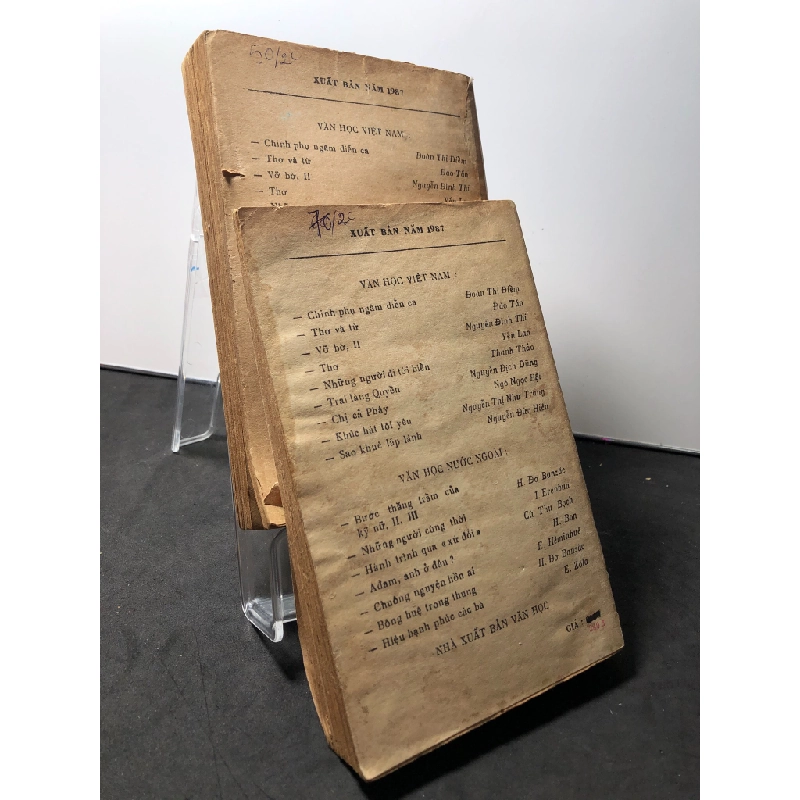 XUẤT BẢN NĂM 1987
VĂN HỌC VIỆT NAM
— Chinh phụ ngâm diễn ca Đoàn Thị Điểm
— Thơ và từ Đào Tấn
— Vỡ bờ, II Nguyễn Đình Thi
— Thơ
XUẤT BẢN NĂM 1987
VĂN HỌC VIỆT NAM :
— Chinh phụ ngâm diễn ca Đoàn Thị Điểm
— Thơ và từ Đào Tấn
— Vỡ bờ, II Nguyễn Đình Thi
— Thơ Yến Lan
— Những người đi tới biển Thanh Thảo
— Trai làng Quyền Nguyễn Địch Dũng
— Chị cả Phây Ngô Ngọc Bội
— Khúc hát tội yêu Nguyễn Thị Như Trang
— Sao khuê lấp lánh Nguyễn Đức Hiền
VĂN HỌC NƯỚC NGOÀI :
— Bước thăng trầm của
kỹ nữ, II, III H. Đơ Banzắc
— Những người cùng thời
— Hành trình qua « xứ đổi »
— Adam, anh ở đâu ? H. Bơn
— Chuông nguyện hồn ai E. Hêminhuê
— Bông huệ trong thung H. Đơ Banzắc
— Hiệu hạnh phúc các bà E. Zola
NHÀ XUẤT BẢN VĂN HỌC
GIÁ :